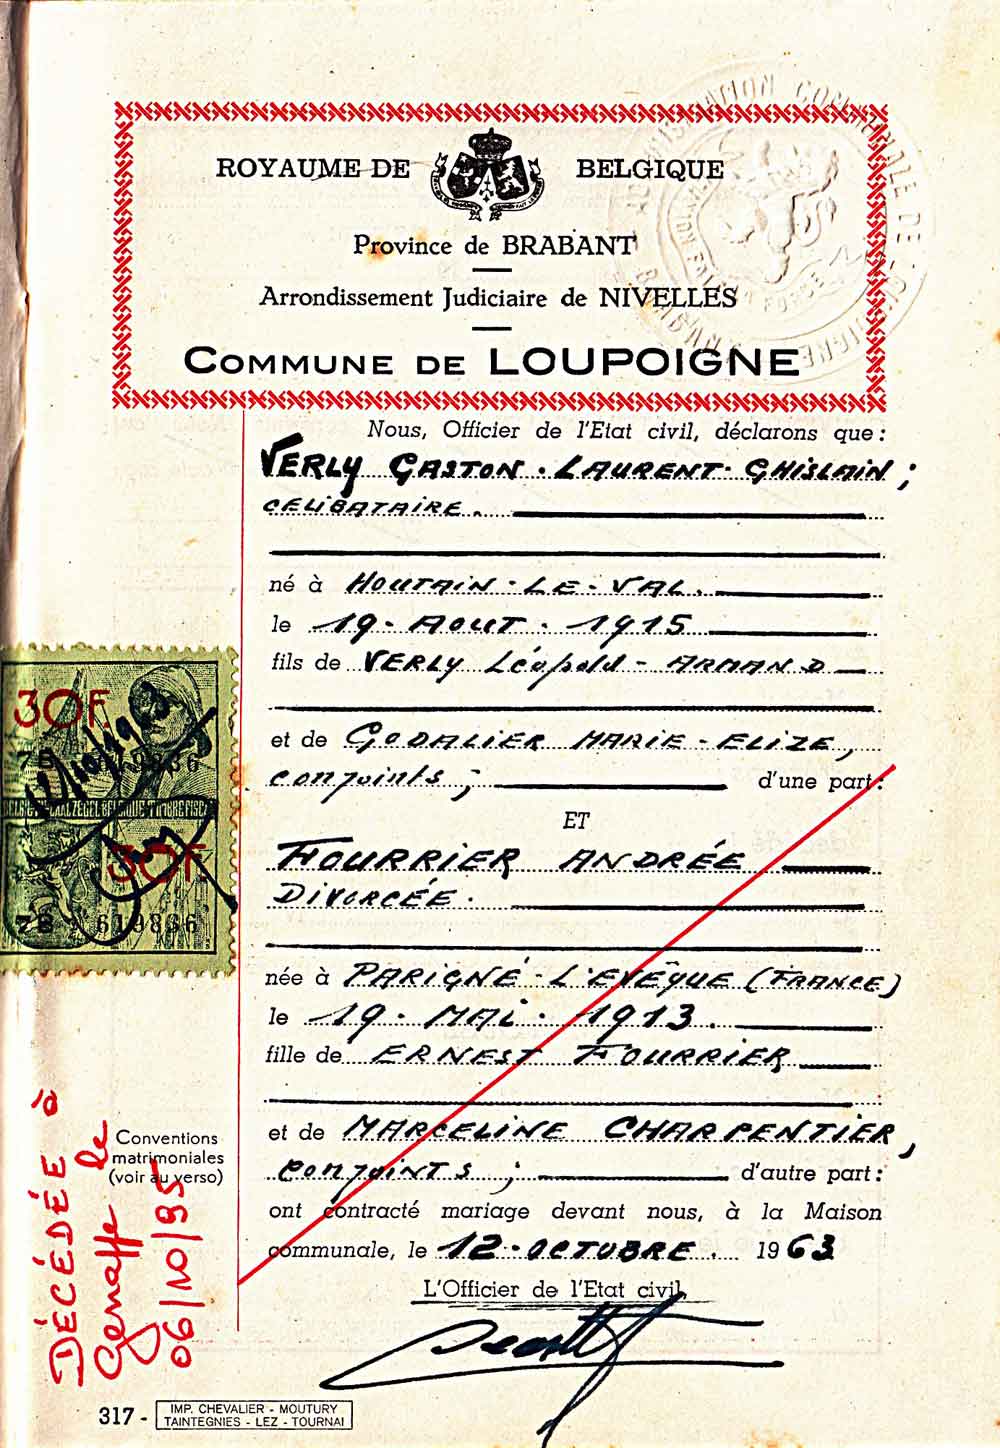 ADMINISTRATION COMMUNALE DE LOUPOIGNE
BRABANT
L'UNION FAIT LA FORCE
ROYAUME DE BELGIQUE
Province de BRABANT
Arrondissement Judiciaire de NIVELLES
COMMUNE DE LOUPOIGNE
Nous, Officier de l'Etat civil, déclarons que :
VERLY GASTON - LAURENT - GHISLAIN ;
CELIBATAIRE.
né à HOUTAIN - LE - VAL.
le 19 - AOUT - 1915
fils de VERLY Léopold - ARMAND
et de GODALIER MARIE - ELIZE,
conjoints ; d'une part :
ET
FOURRIER ANDRÉE
DIVORCÉE.
née à PARIGNÉ - L'EVÊQUE (FRANCE)
le 19 - MAI - 1913.
fille de ERNEST FOURRIER
et de MARCELINE CHARPENTIER,
CONJOINTS ; d'autre part :
ont contracté mariage devant nous, à la Maison
communale, le 12 - OCTOBRE. 1963
L'Officier de l'Etat civil,
Conventions
matrimoniales
(voir au verso)
DÉCÉDÉE à
Genappe le
06/10/95
30F.
78 619836
BELGIË-FISCALE ZEGEL BELGIQUE-TIMBRE FISCAL
30F
78 619836
317 -
IMP. CHEVALIER - MOUTURY
TAINTEGNIES - LEZ - TOURNAI